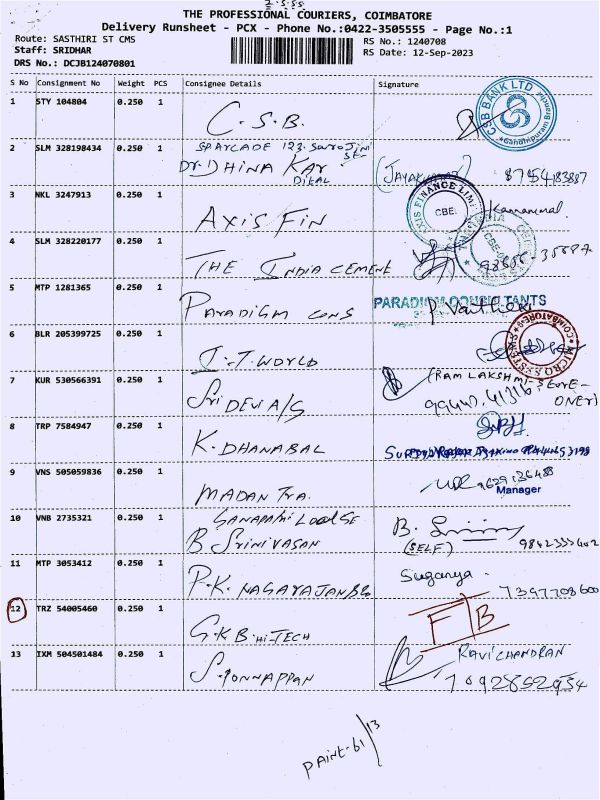 THE PROFESSIONAL COURIERS, COIMBATORE
Delivery Runsheet - PCX - Phone No.:0422-3505555 - Page No.:1
Route: SASTHIRI ST CMS
Staff: SRIDHAR
DRS No.: DCJB124070801
RS No.: 1240708
RS Date: 12-Sep-2023
S No Consignment No Weight PCS Consignee Details Signature
1 STY 104804 0.250 1 C.S.B. CSB BANK LTD Gandhipuram Branch
2 SLM 328198434 0.250 1
Dr. DHINA KAR (JAYAKUMAR) 8754183887
3 NKL 3247913 0.250 1 AXIS FIN AXIS FINANCE LIMI CBE
4 SLM 328220177 0.250 1 THE INDIA CEMENE
5 MTP 1281365 0.250 1 Paradigm cons PARADIGM CONSULTANTS
6 BLR 205399725 0.250 1 I.T. WORLD MICRO SYSTEMS COIMBATORE-9
7 KUR 530566391 0.250 1 Sri DEVI A/S (RAM LAKSHMI-STORE-
ONER)
8 TRP 7584947 0.250 1 K. DHANABAL
9 VNS 505059836 0.250 1 MADAN Tra. 9629136488
Manager
10 VNB 2735321 0.250 1
B SRINIVASAN (SELF)
11 MTP 3053412 0.250 1 P.K. NAGARAJAN Suganya
12 TRZ 54005460 0.250 1 G.K.B. HI-TECH F/B
13 IXM 504501484 0.250 1 S. PONNAPPAN RAVICHANDRAN